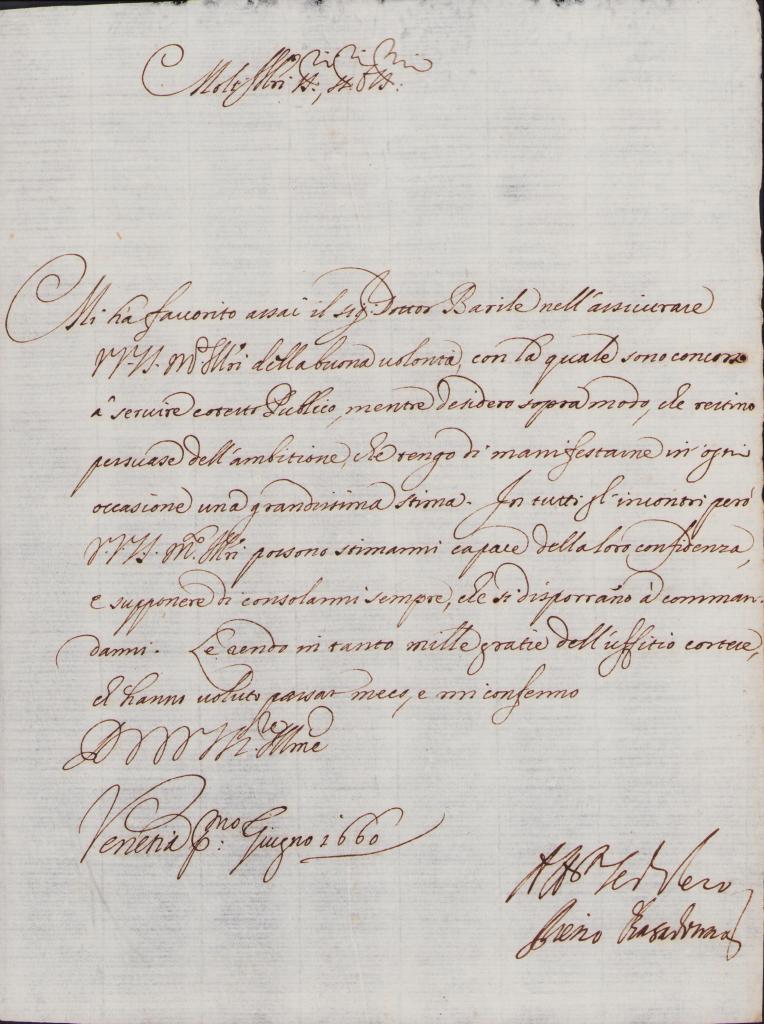 Molt' Ill.ri SS.ri, SS.ri SS.ri
Mi há fauorito assai il Sig.r Dottor Barile nell'assicurare
VV. SS. M.to Ill.ri della buona uolontà, con la quale sono concorso
à seruire cotesto Publico, mentre desidero sopra modo, che restino
persuase dell'ambitione, che tengo di manifestarne in ogni
occasione una grandissima stima. In tutti gl'incontri però
VV. SS. M.to Ill.ri possono stimarmi capace della loro confidenza,
e supponere di consolarmi sempre, che si disporrano à comman-
darmi. Le rendo in tanto mille gratie dell'uffitio cortese,
ch'hanno uoluto passar meco, e mi confermo
D VV. SS. M.to Ill.me
Venetia p.mo Giugno 1660
Aff.mo Ser.r Vero
Piero Basadonna